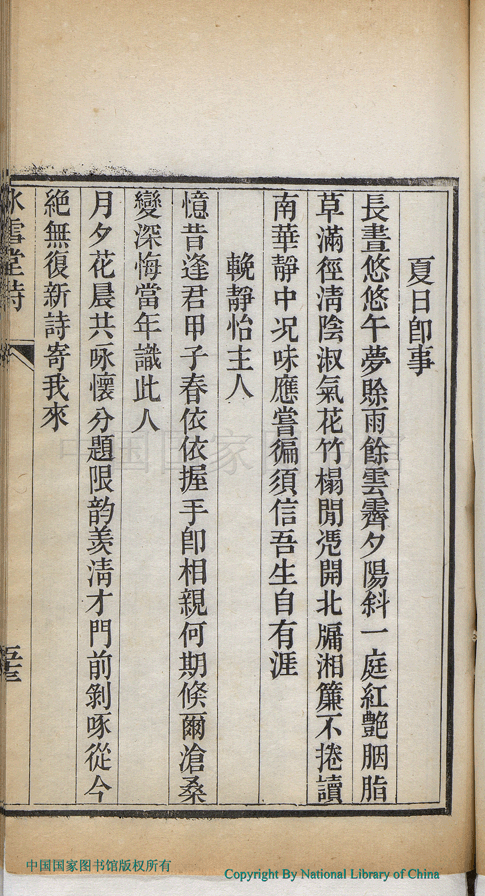 夏日卽事
長晝悠悠午夢賒雨餘雲霽夕陽斜一庭紅艷胭脂
草滿徑淸陰淑氣花竹榻閒凭開北牖湘簾不捲讀
南華靜中况味應嘗徧須信吾生自有涯
輓靜怡主人
憶昔逢君甲子春依依握手卽相親何期倏爾滄桑
變深悔當年識此人
月夕花晨共咏懷分題限韵羨淸才門前剝啄從今
絕無復新詩寄我來
冰雪堂詩
中国国家图书馆
中国国家图书馆版权所有
Copyright By National Library of China